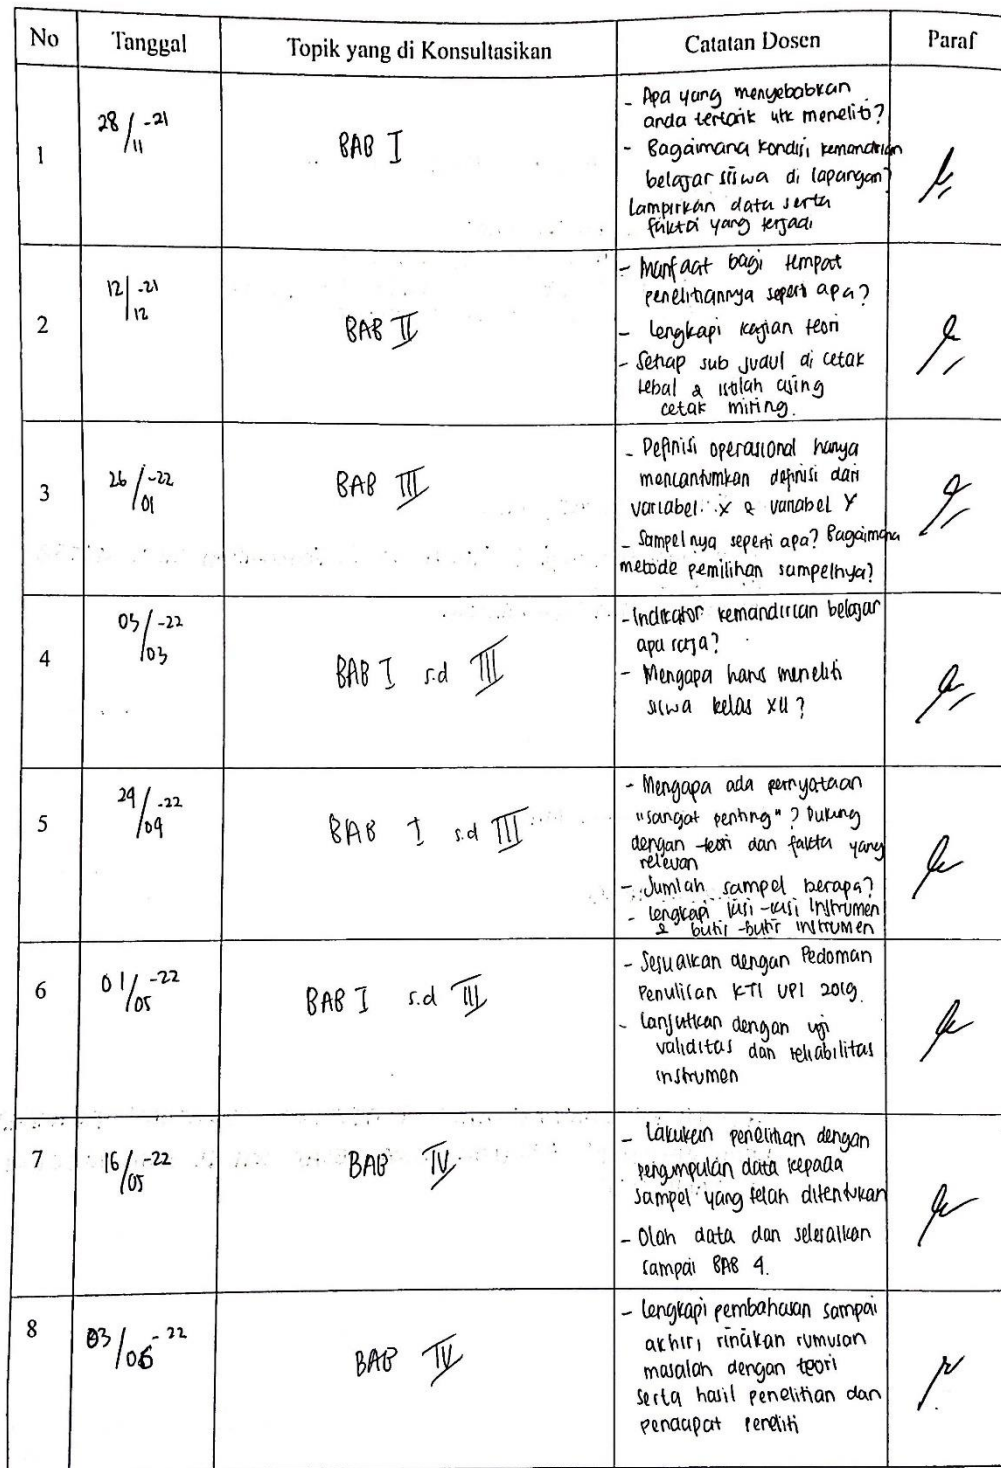 No Tanggal Topik yang di Konsultasikan Catatan Dosen Paraf
1 28/11 -21 BAB I
- Apa yang menyebabkan
anda tertarik utk meneliti?
- Bagaimana kondisi kemandirian
belajar siswa di lapangan?
Lampirkan data serta
faktor yang terjadi
2 12/12 -21 BAB II
- Manfaat bagi tempat
penelitiannya seperti apa?
- Lengkapi kajian teori
- Setiap sub judul di cetak
tebal & istilah asing
cetak miring.
3 26/01 -22 BAB III
- Definisi operasional hanya
mencantumkan definisi dari
variabel x & variabel Y
- Sampelnya seperti apa? Bagaimana
metode pemilihan sampelnya?
4 05/03 -22 BAB I s.d III
- Indikator kemandirian belajar
apa saja?
- Mengapa harus meneliti
siswa kelas XII?
5 29/09 -22 BAB I s.d III
- Mengapa ada pernyataan
"sangat penting"? Dukung
dengan teori dan fakta yang
relevan
- Jumlah sampel berapa?
- Lengkapi kisi-kisi Instrumen
& butir-butir instrumen
6 01/05 -22 BAB I s.d III
- Sesuaikan dengan Pedoman
Penulisan KTI UPI 2019.
- Lanjutkan dengan uji
validitas dan reliabilitas
instrumen
7 16/05 -22 BAB IV
- Lakukan penelitian dengan
pengumpulan data kepada
sampel yang telah ditentukan
- Olah data dan selesaikan
sampai BAB 4.
8 03/06 -22 BAB IV
- Lengkapi pembahasan sampai
akhir, rumusan
masalah dengan teori
serta hasil penelitian dan
pendapat peneliti